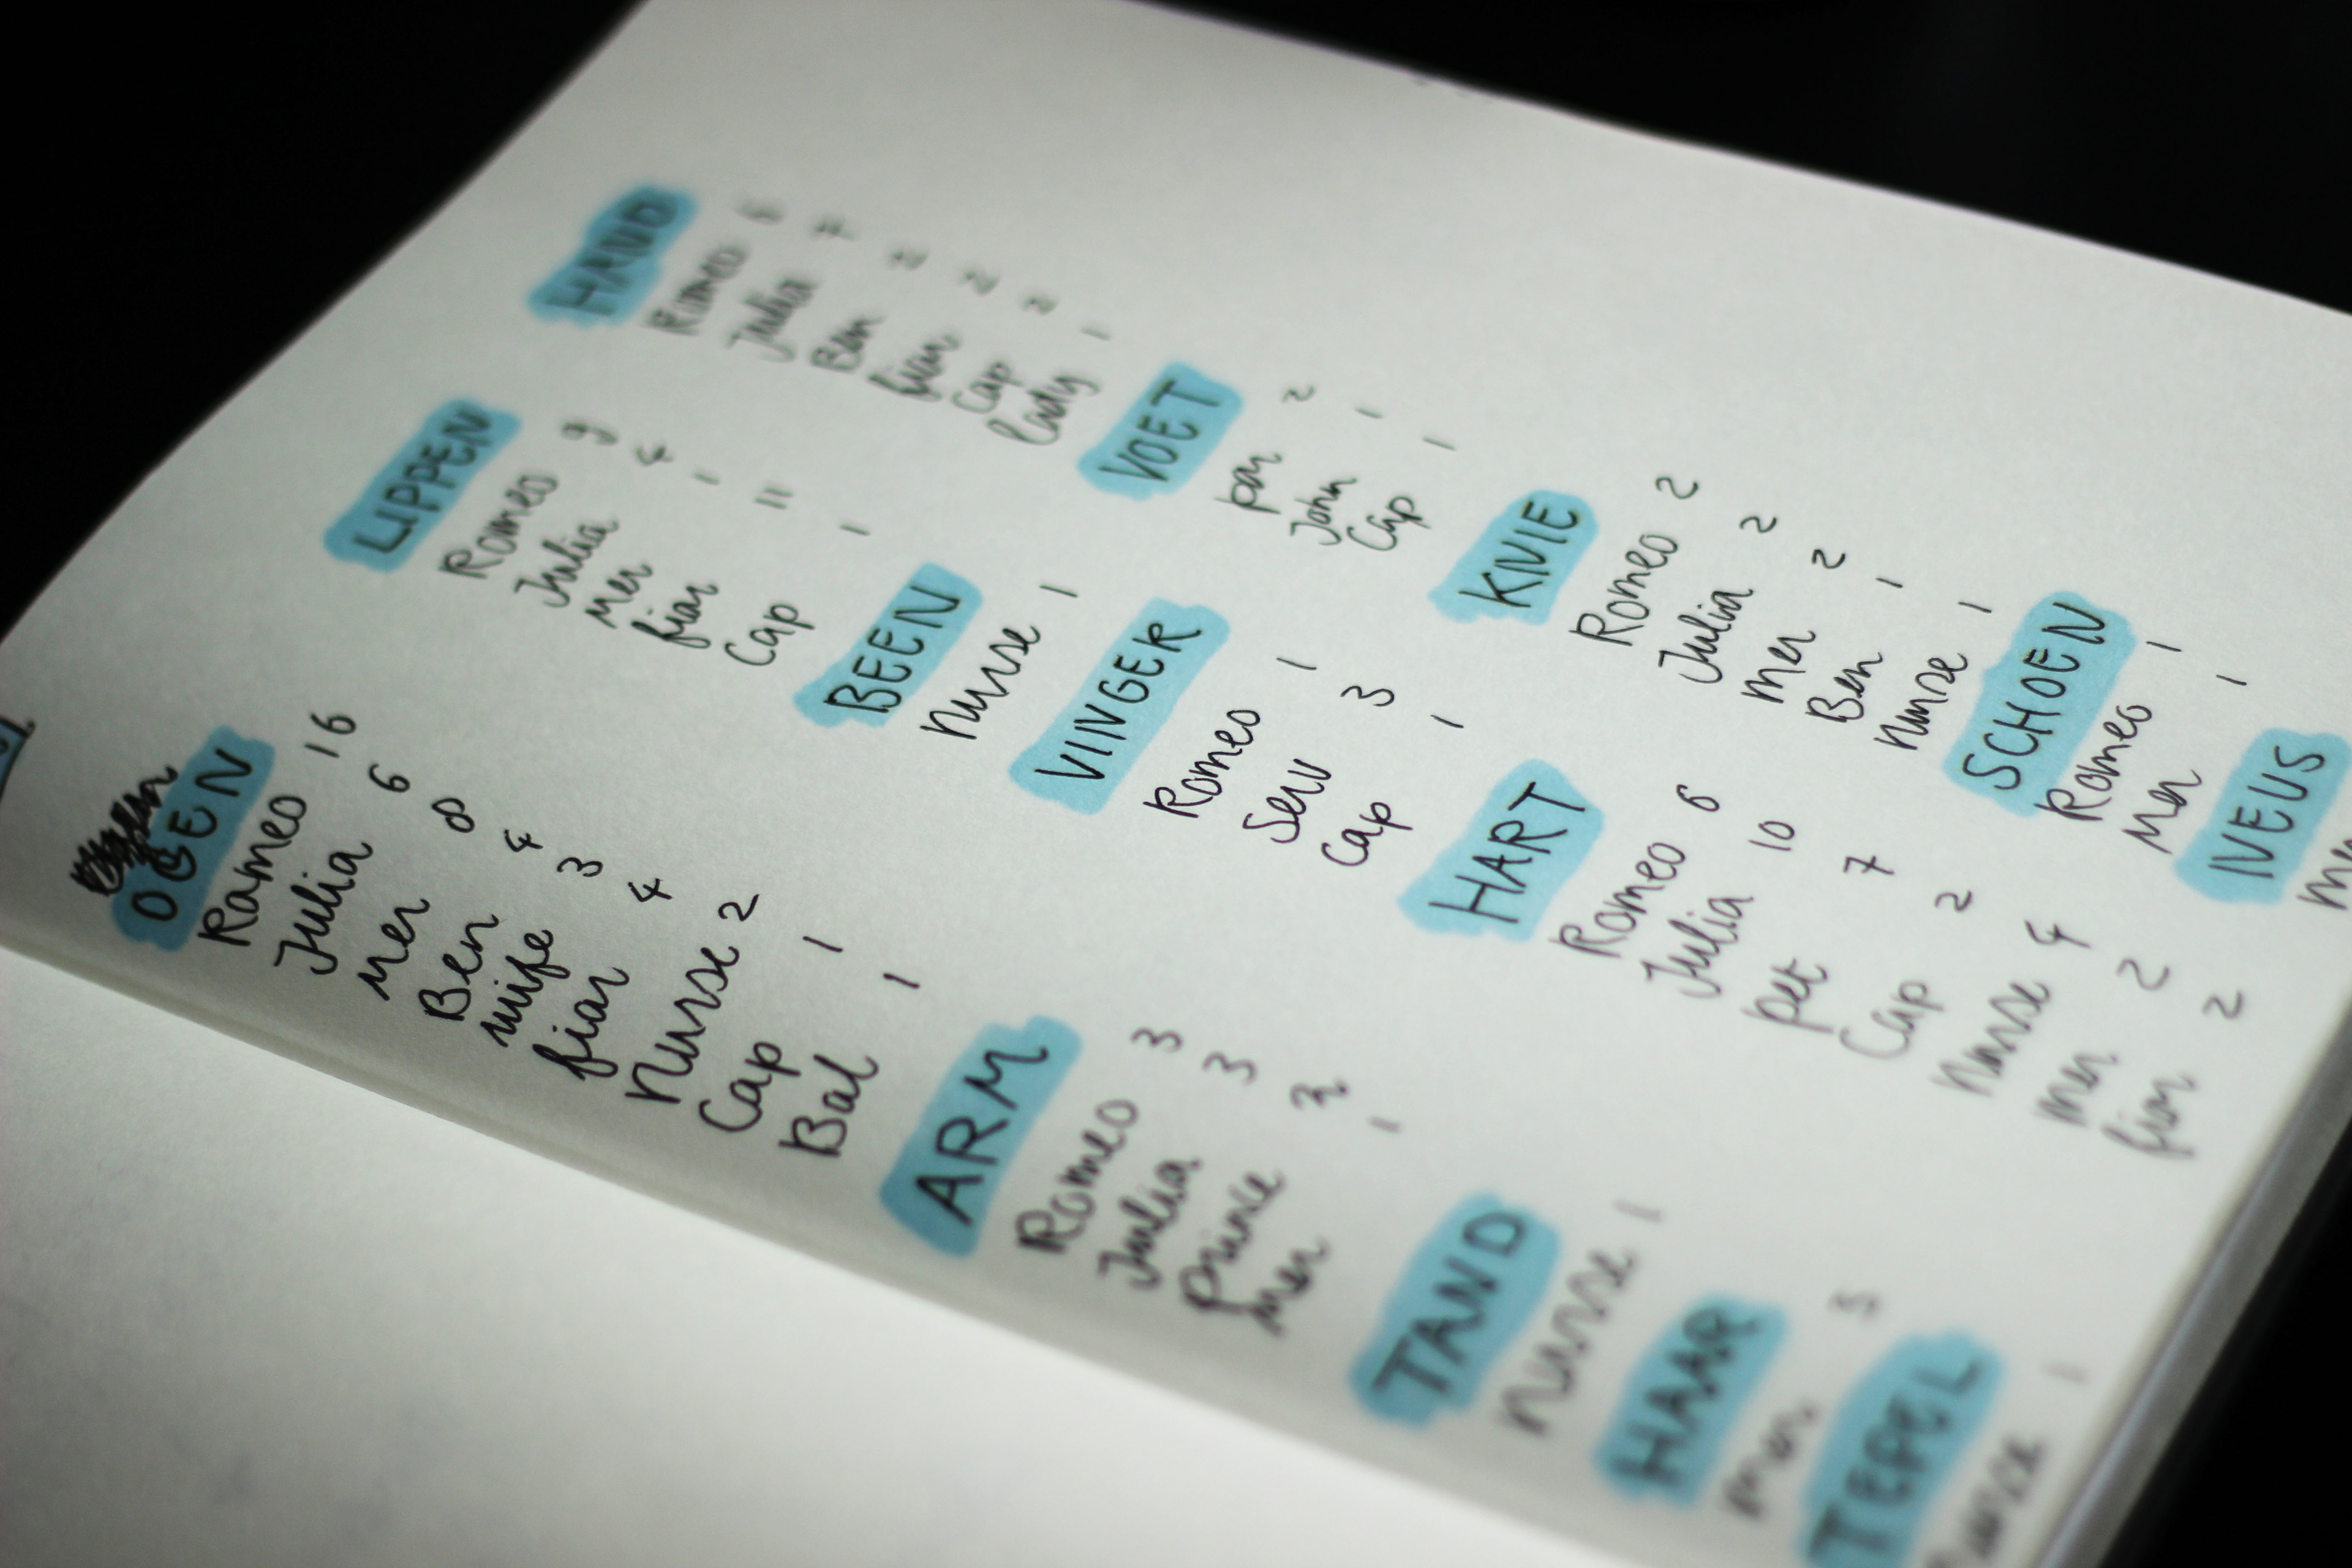 OGEN
Romeo 16
Julia 6
Mer 8
Ben 4
wife 3
fiar 4
Nurse 2
Cap 1
Bal 1
ARM
Romeo 3
Julia 3
prince 2
mer 1
TAND
Nurse 1
HAAR
mer 3
TEPEL
nurse 1
LIPPEN
Romeo 9
Julia 4
Mer 1
fiar 11
Cap 1
BEEN
Nurse 1
VINGER
Romeo 1
Serv 3
Cap 1
HART
Romeo 6
Julia 10
pet 7
Cap 2
Nurse 4
mer 2
fiar 2
HAND
Romeo 6
Julia 7
Ben 2
fiar 2
Cap 2
lady 1
VOET
par 2
John 1
Cap 1
KNIE
Romeo 2
Julia 2
Mer 2
Ben 1
Nurse 1
SCHOEN
Romeo 1
Mer 1
NEUS